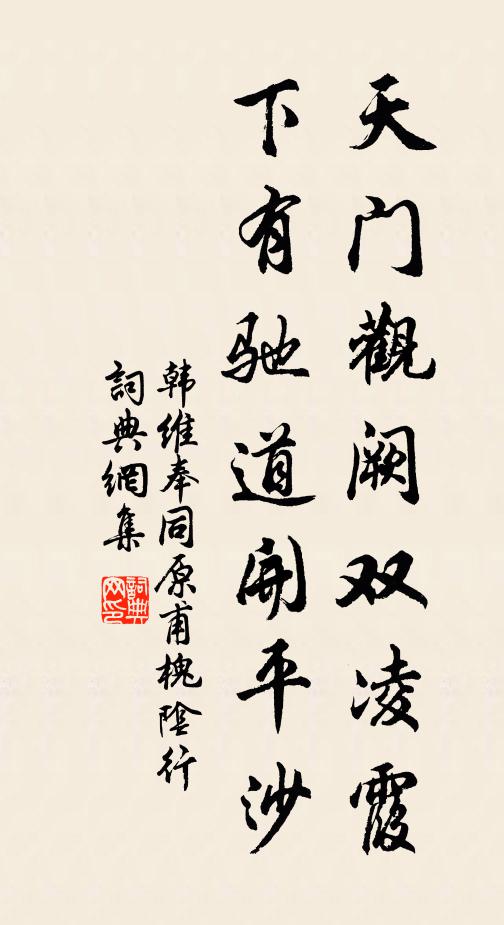 天门觀阙双凌霞
下有驰道開平沙
韩维奉同原甫槐陰行
詞典網集
詞典網印